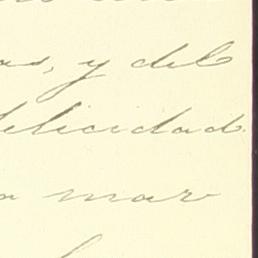 as, y del
felicidad
a mar